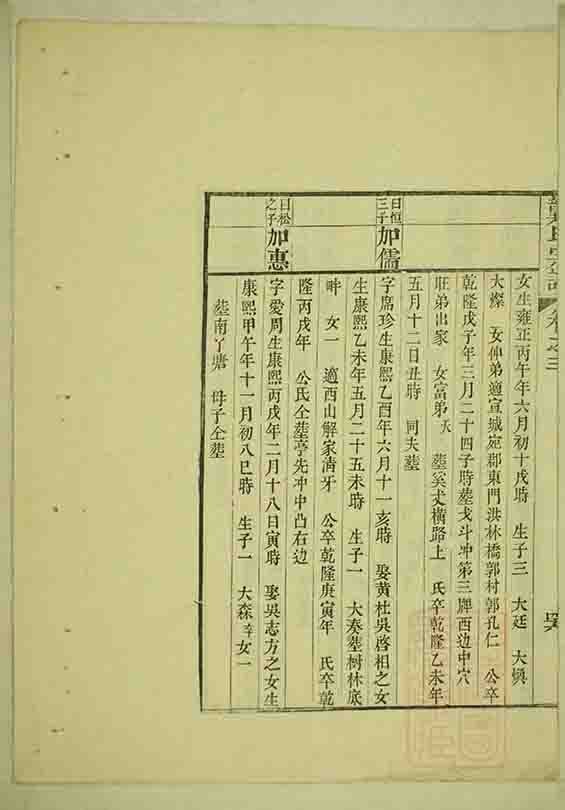 卷之三
吳
女生雍正丙午年六月初十戌時 生子三 大廷 大槙
大燦 女仲弟適宣城宛郡東門洪林橋郭村郭孔仁 公卒
乾隆戊子年三月二十四子時塟戈斗冲第三牌西边中穴
旺弟出家 女富弟夭 塟奚史橫路上 氏卒乾隆乙未年
五月十二日丑時 同夫塟
曰恒三子 加儒 字席珍生康熙乙酉年六月十一亥時 娶黄杜吳啓相之女
生康熙乙未年五月二十五未時 生子一 大奏塟树林底
畔 女一 適西山解家清牙 公卒乾隆庚寅年 氏卒乾
隆丙戌年 公氏仝塟亭先冲中凸右边
曰松之子 加惠 字愛周生康熙丙戌年二月十八日寅時 娶吳志方之女生
康熙甲午年十一月初八巳時 生子一 大森 女一
塟南丫塘 母子仝塟